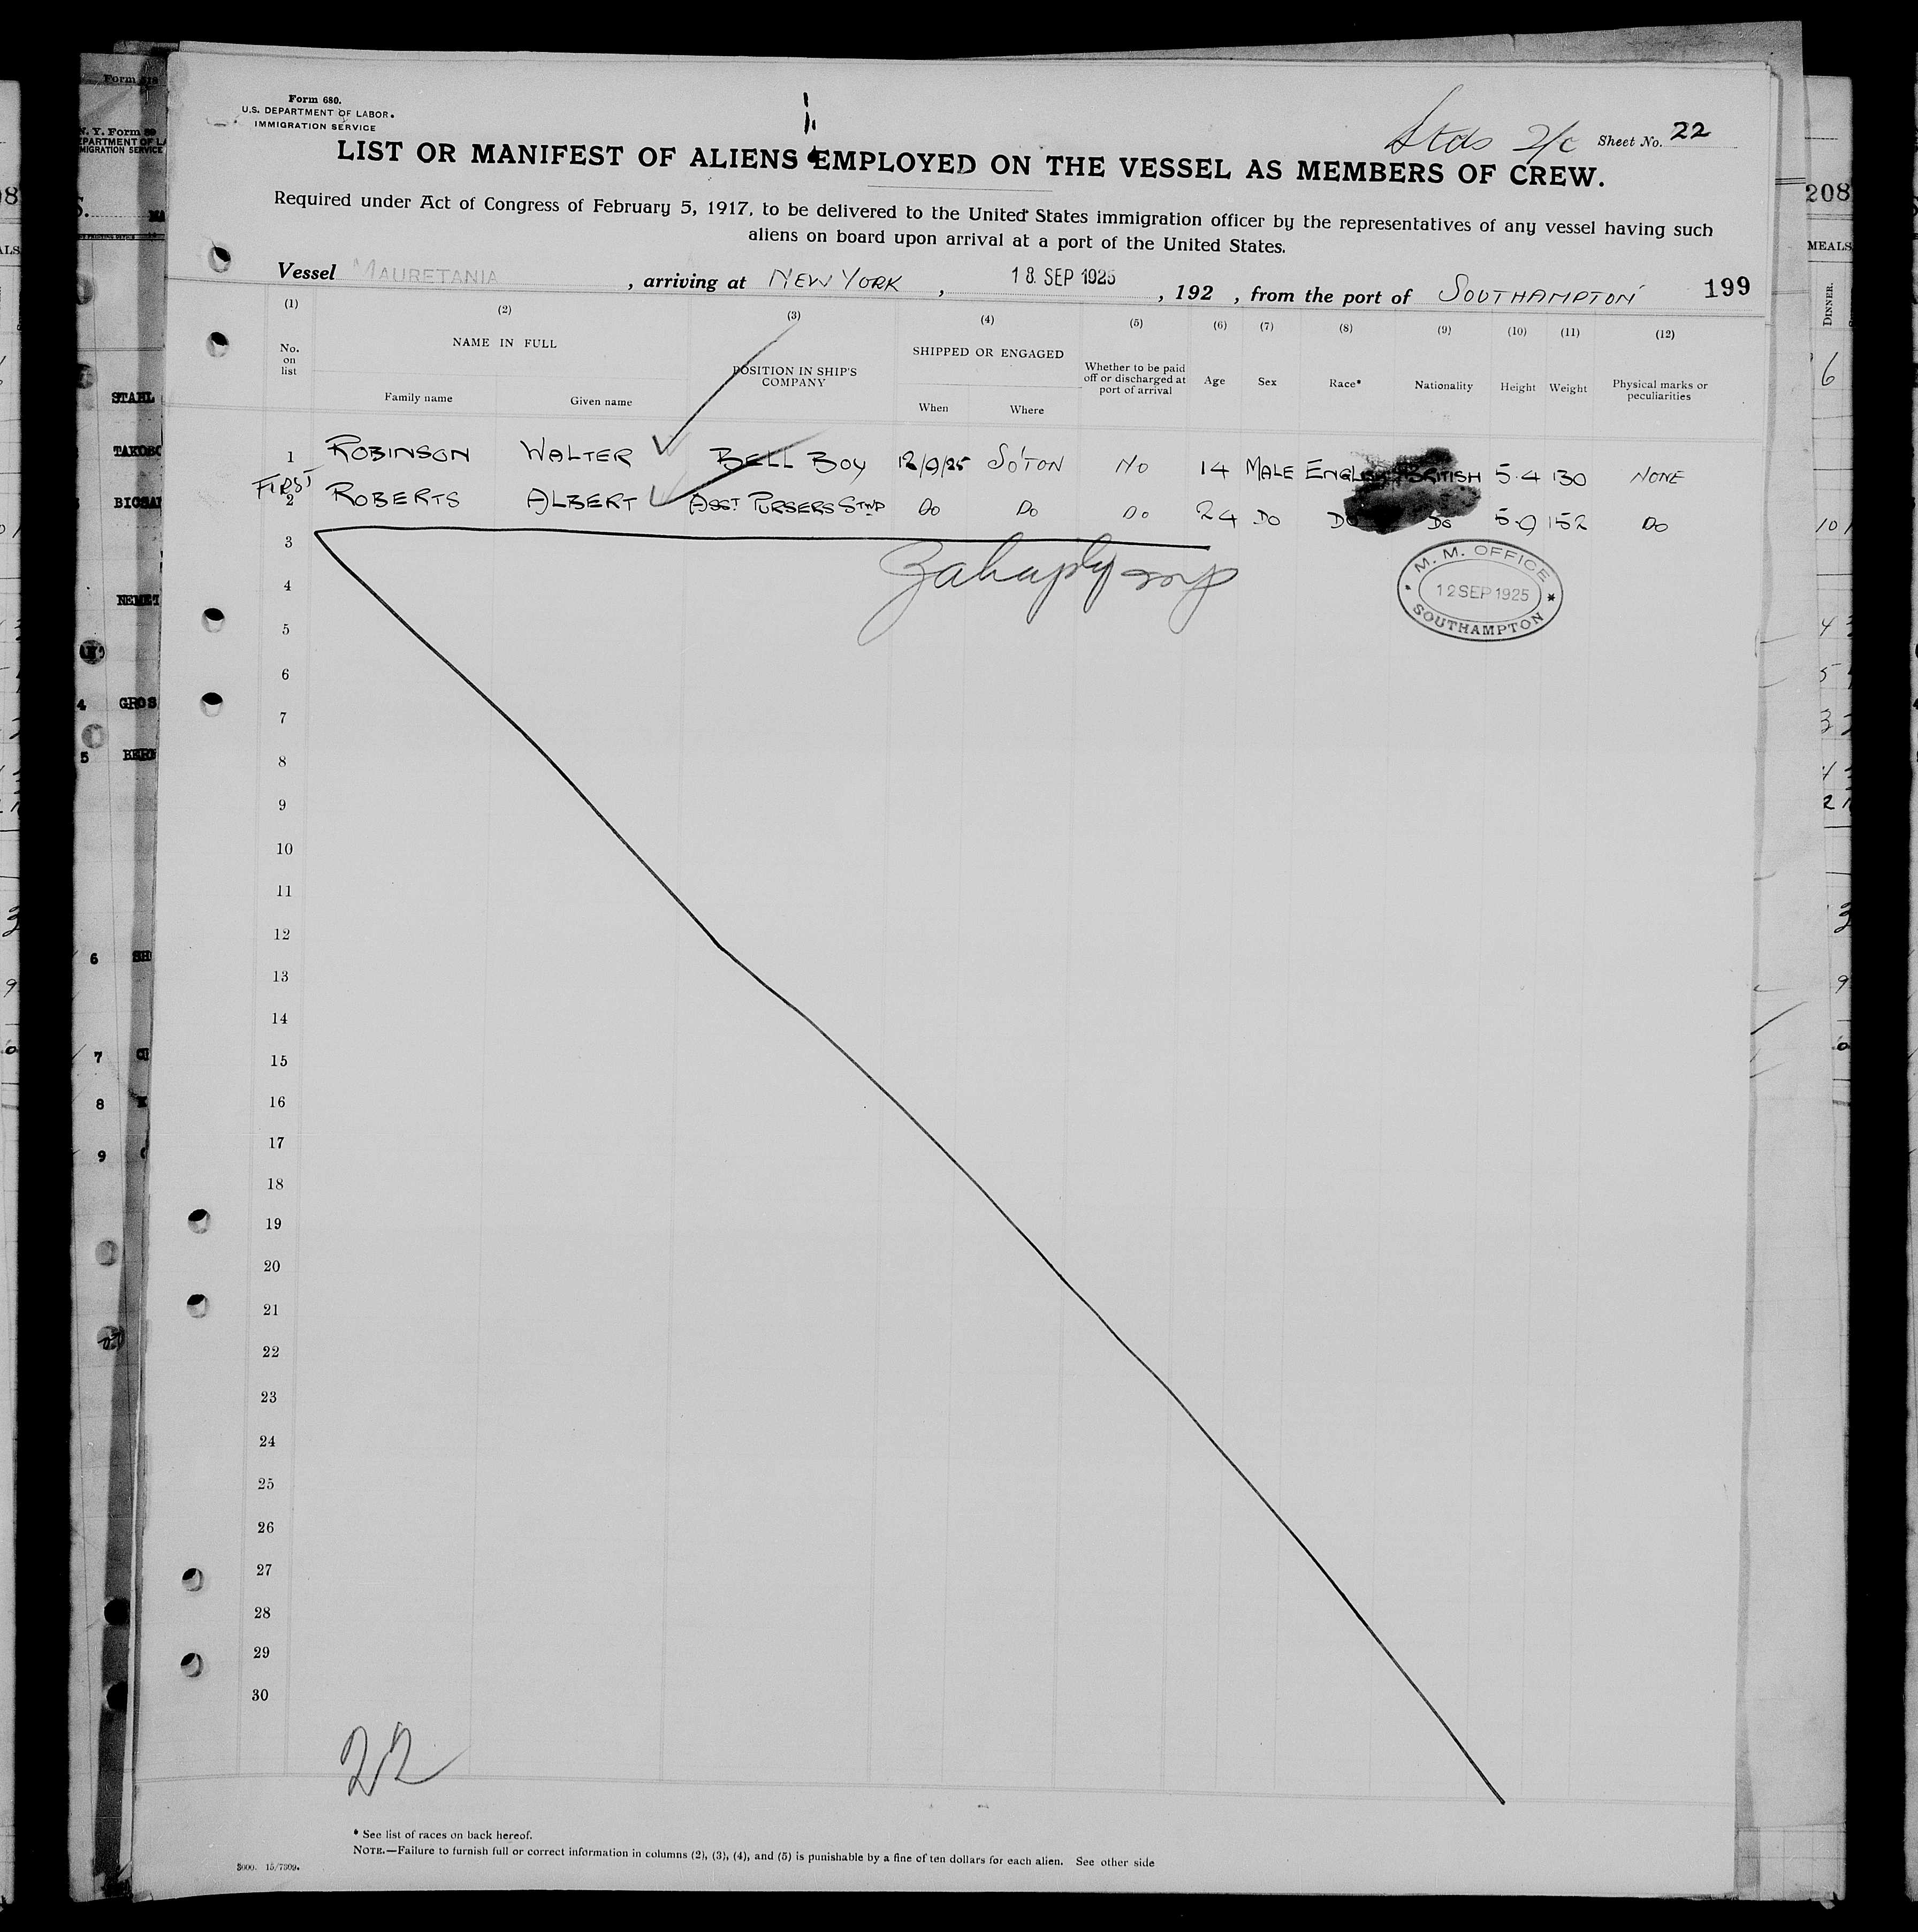 Form 680.
U.S. DEPARTMENT OF LABOR.
IMMIGRATION SERVICE
Stds 2/c Sheet No. 22
LIST OR MANIFEST OF ALIENS EMPLOYED ON THE VESSEL AS MEMBERS OF CREW.
Required under Act of Congress of February 5, 1917, to be delivered to the United States immigration officer by the representatives of any vessel having such
aliens on board upon arrival at a port of the United States.
Vessel MAURETANIA, arriving at NEW YORK, 18 SEP 1925, 192 , from the port of SOUTHAMPTON 199
(1) (2) (3) (4) (5) (6) (7) (8) (9) (10) (11) (12)
No. on list NAME IN FULL POSITION IN SHIP'S COMPANY SHIPPED OR ENGAGED Whether to be paid off or discharged at port of arrival Age Sex Race* Nationality Height Weight Physical marks or peculiarities
Family name Given name When Where
1 ROBINSON WALTER BELL BOY 12/9/25 SO'TON NO 14 MALE ENGLISH BRITISH 5-4 130 NONE
FIRST
2 ROBERTS ALBERT ASST PURSERS STWD DO DO DO 24 DO DO DO 5-9 152 DO
3
4
5
6
7
8
9
10
11
12
13
14
15
16
17
18
19
20
21
22
23
24
25
26
27
28
29
30
M. M. OFFICE
12 SEP 1925
SOUTHAMPTON
22
* See list of races on back hereof.
NOTE.—Failure to furnish full or correct information in columns (2), (3), (4), and (5) is punishable by a fine of ten dollars for each alien. See other side
3000. 15/7309.
Form
N. Y. Form
STAHL
GROS
4
5
6
7
8
9
208
MEALS
DINNER.